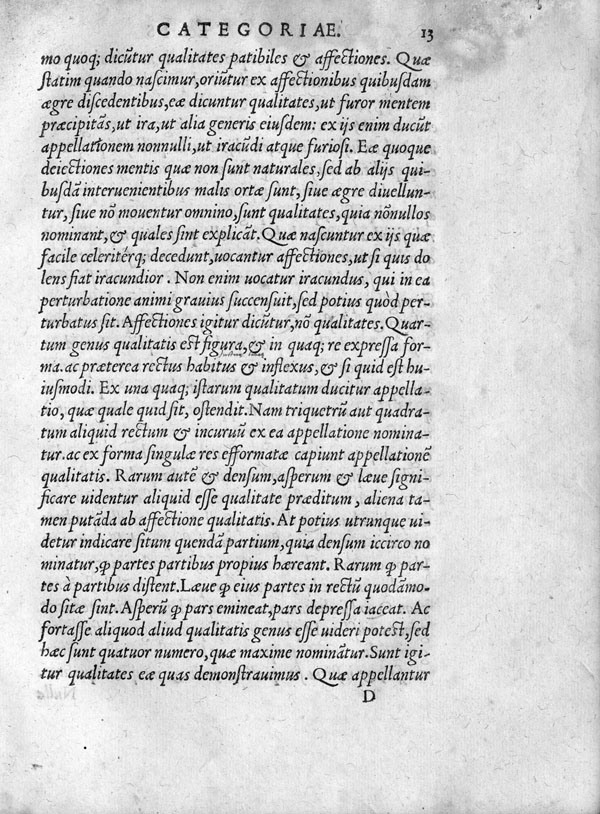 CATEGORIAE. 13
mo quoq; dicũtur qualitates patibiles & affectiones. Quæ
ſtatim quando naſcimur, oriũtur ex affectionibus quibuſdam
ægre diſcedentibus, eæ dicuntur qualitates, ut furor mentem
præcipitãs, ut ira, ut alia generis eiuſdem: ex ijs enim ducũt
appellationem nonnulli, ut iracũdi atque furioſi. Eæ quoque
deiectiones mentis quæ non ſunt naturales, ſed ab alijs qui-
buſdã interuenientibus malis ortæ ſunt, ſiue ægre diuellun-
tur, ſiue nõ mouentur omnino, ſunt qualitates, quia nõnullos
nominant, & quales ſint explicãt. Quæ naſcuntur ex ijs quæ
facile celeriterq́; decedunt, uocantur affectiones, ut ſi quis do
lens fiat iracundior. Non enim uocatur iracundus, qui in ea
perturbatione animi grauius ſuccenſuit, ſed potius quòd per-
turbatus ſit. Affectiones igitur dicũtur, nõ qualitates. Quar-
tum genus qualitatis eſt figura, & in quaq; re expreſſa for-
ma. ac præterea rectus habitus & inflexus, & ſi quid eſt hu-
iuſmodi. Ex una quaq; iſtarum qualitatum ducitur appella-
tio, quæ quale quid ſit, oſtendit. Nam triquetrũ aut quadra-
tum aliquid rectum & incuruũ ex ea appellatione nomina-
tur. ac ex forma ſingulæ res efformatæ capiunt appellationẽ
qualitatis. Rarum autẽ & denſum, aſperum & læue ſigni-
ficare uidentur aliquid eſſe qualitate præditum, aliena ta-
men putãda ab affectione qualitatis. At potius utrunque ui-
detur indicare ſitum quendã partium, quia denſum iccirco no
minatur, ꝙ partes partibus propius hæreant. Rarum ꝙ par-
tes à partibus diſtent. Læue ꝙ eius partes in rectũ quodãmo-
do ſitæ ſint. Aſperũ ꝙ pars emineat, pars depreſſa iaceat. Ac
fortaſſe aliquod aliud qualitatis genus eſſe uideri poteſt, ſed
hæc ſunt quatuor numero, quæ maxime nominãtur. Sunt igi-
tur qualitates eæ quas demonſtrauimus. Quæ appellantur
D